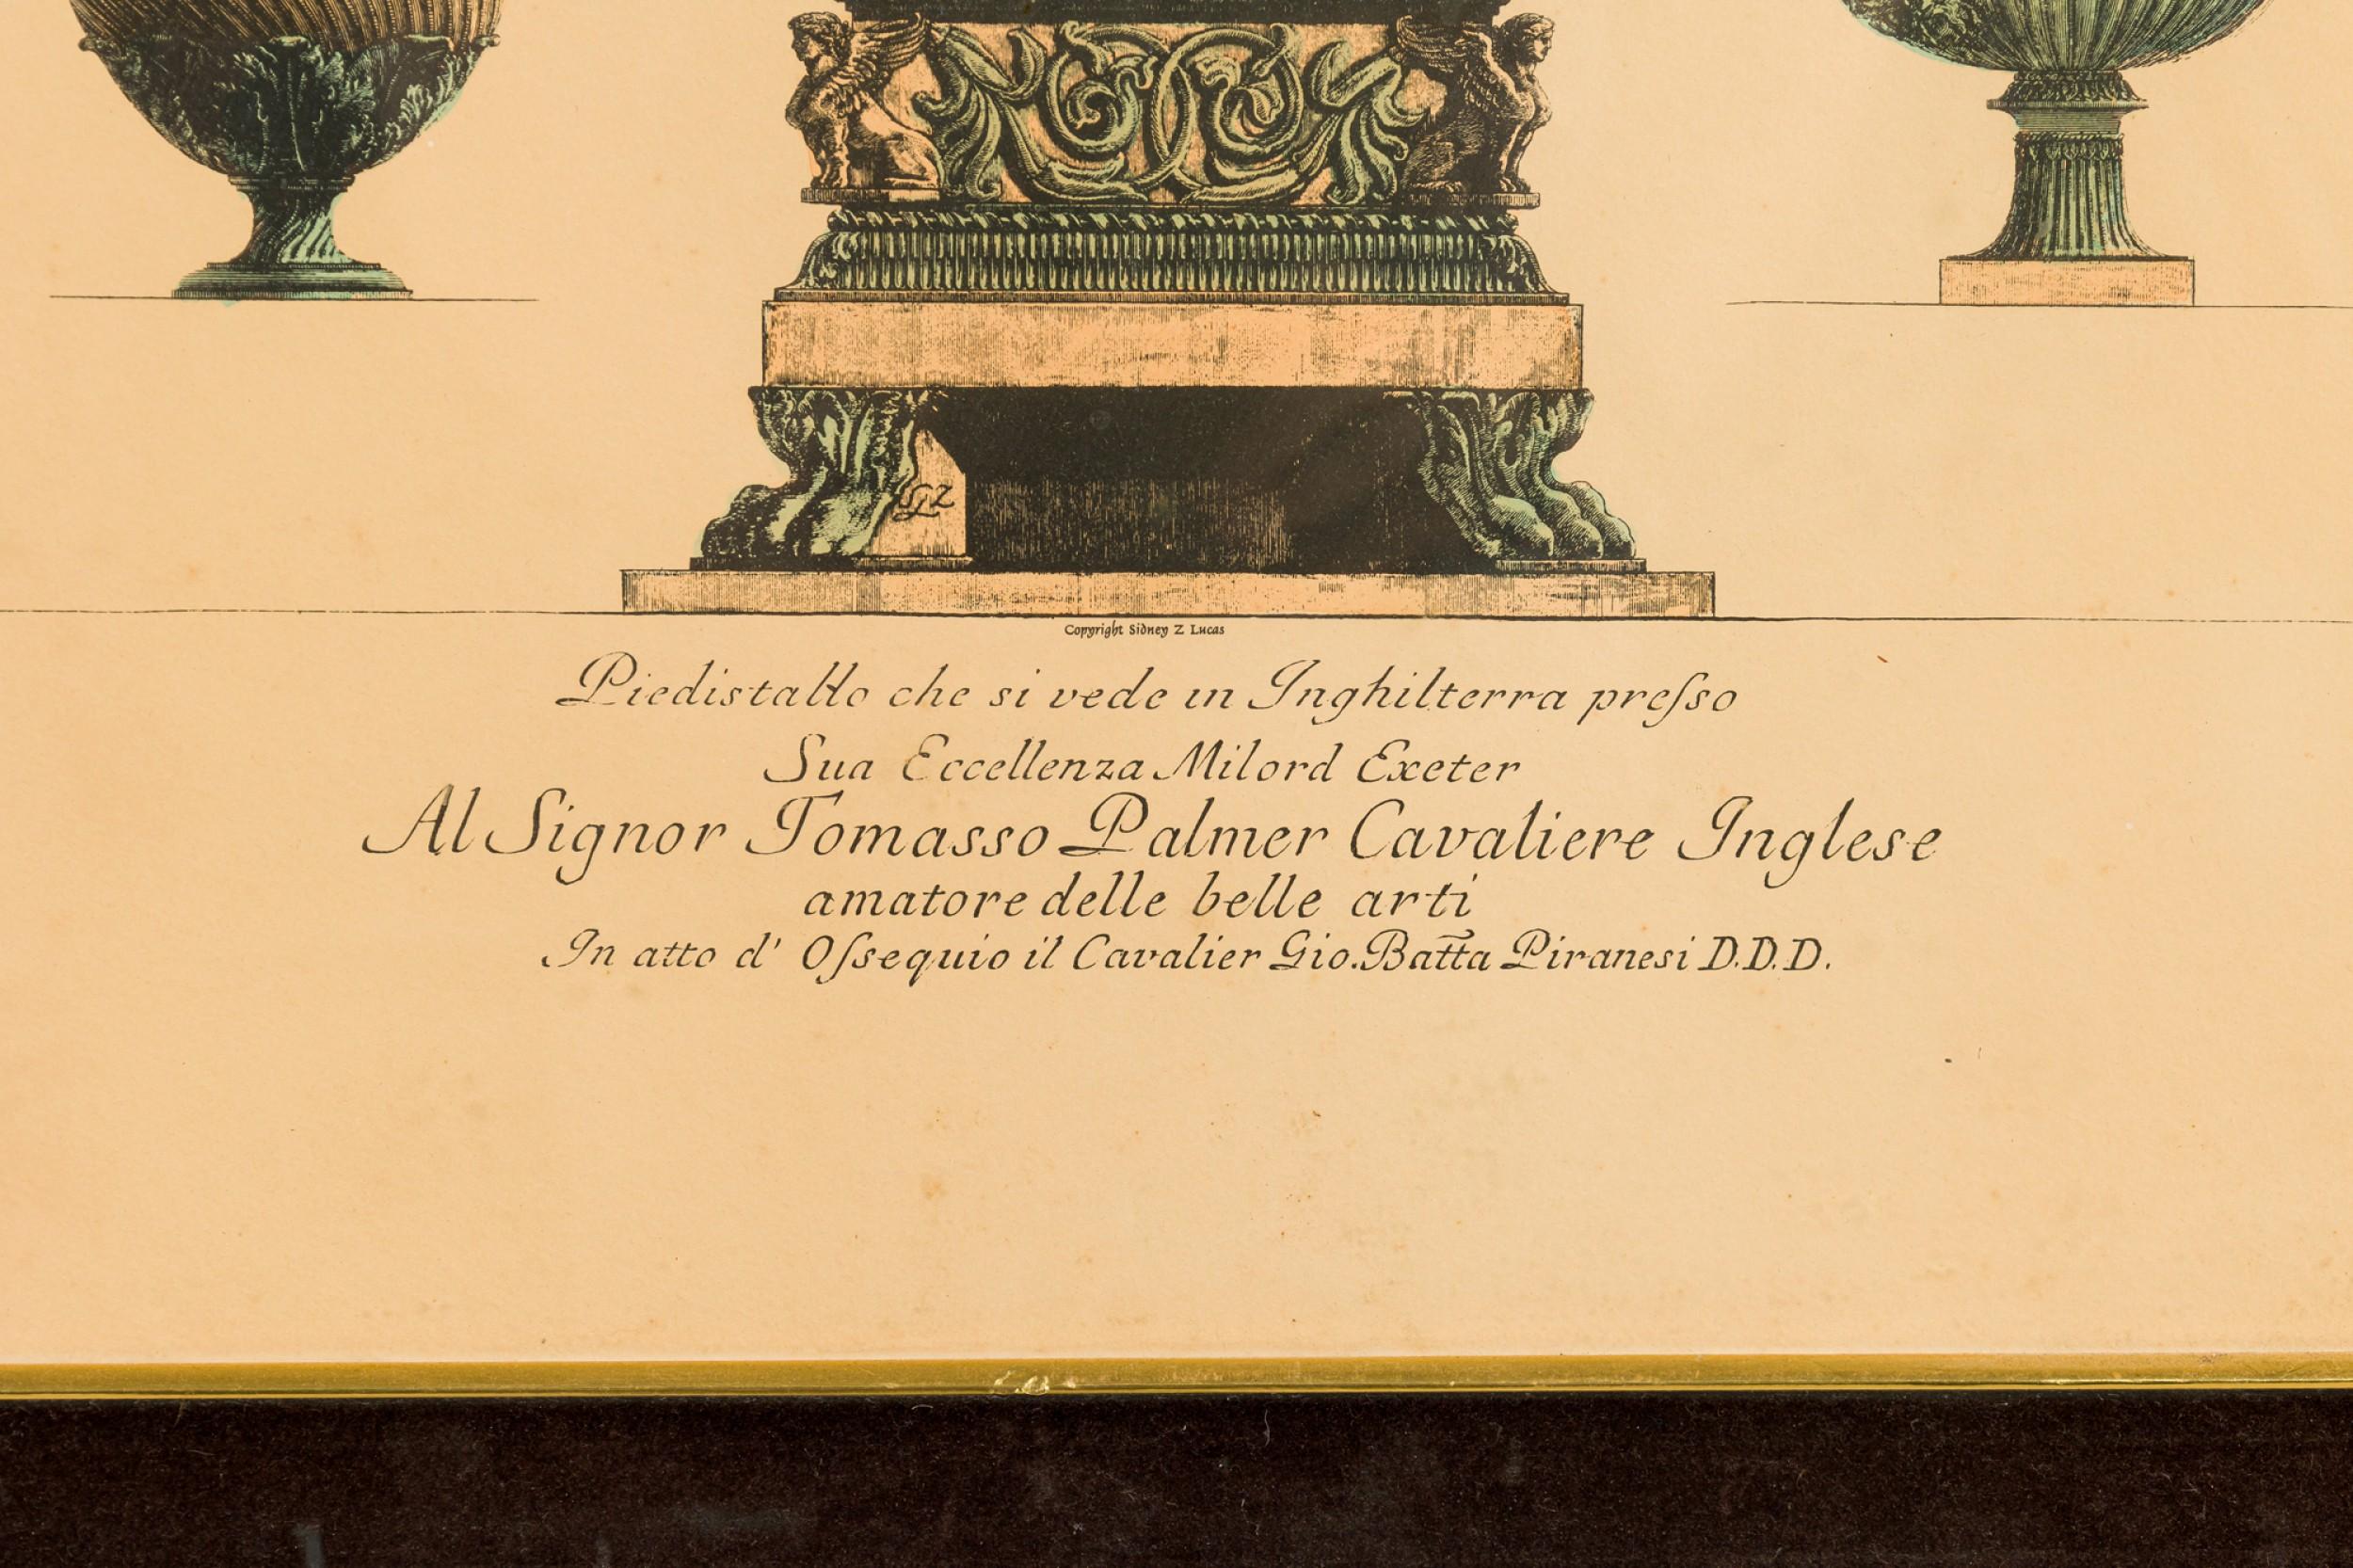 SLZ
Copyright Sidney Z Lucas
Piedistallo che si vede in Inghilterra preſso
Sua Eccellenza Milord Exeter
Al Signor Tomasso Palmer Cavaliere Inglese
amatore delle belle arti
In atto d' Oſsequio il Cavalier Gio. Batt̄a Piranesi D.D.D.